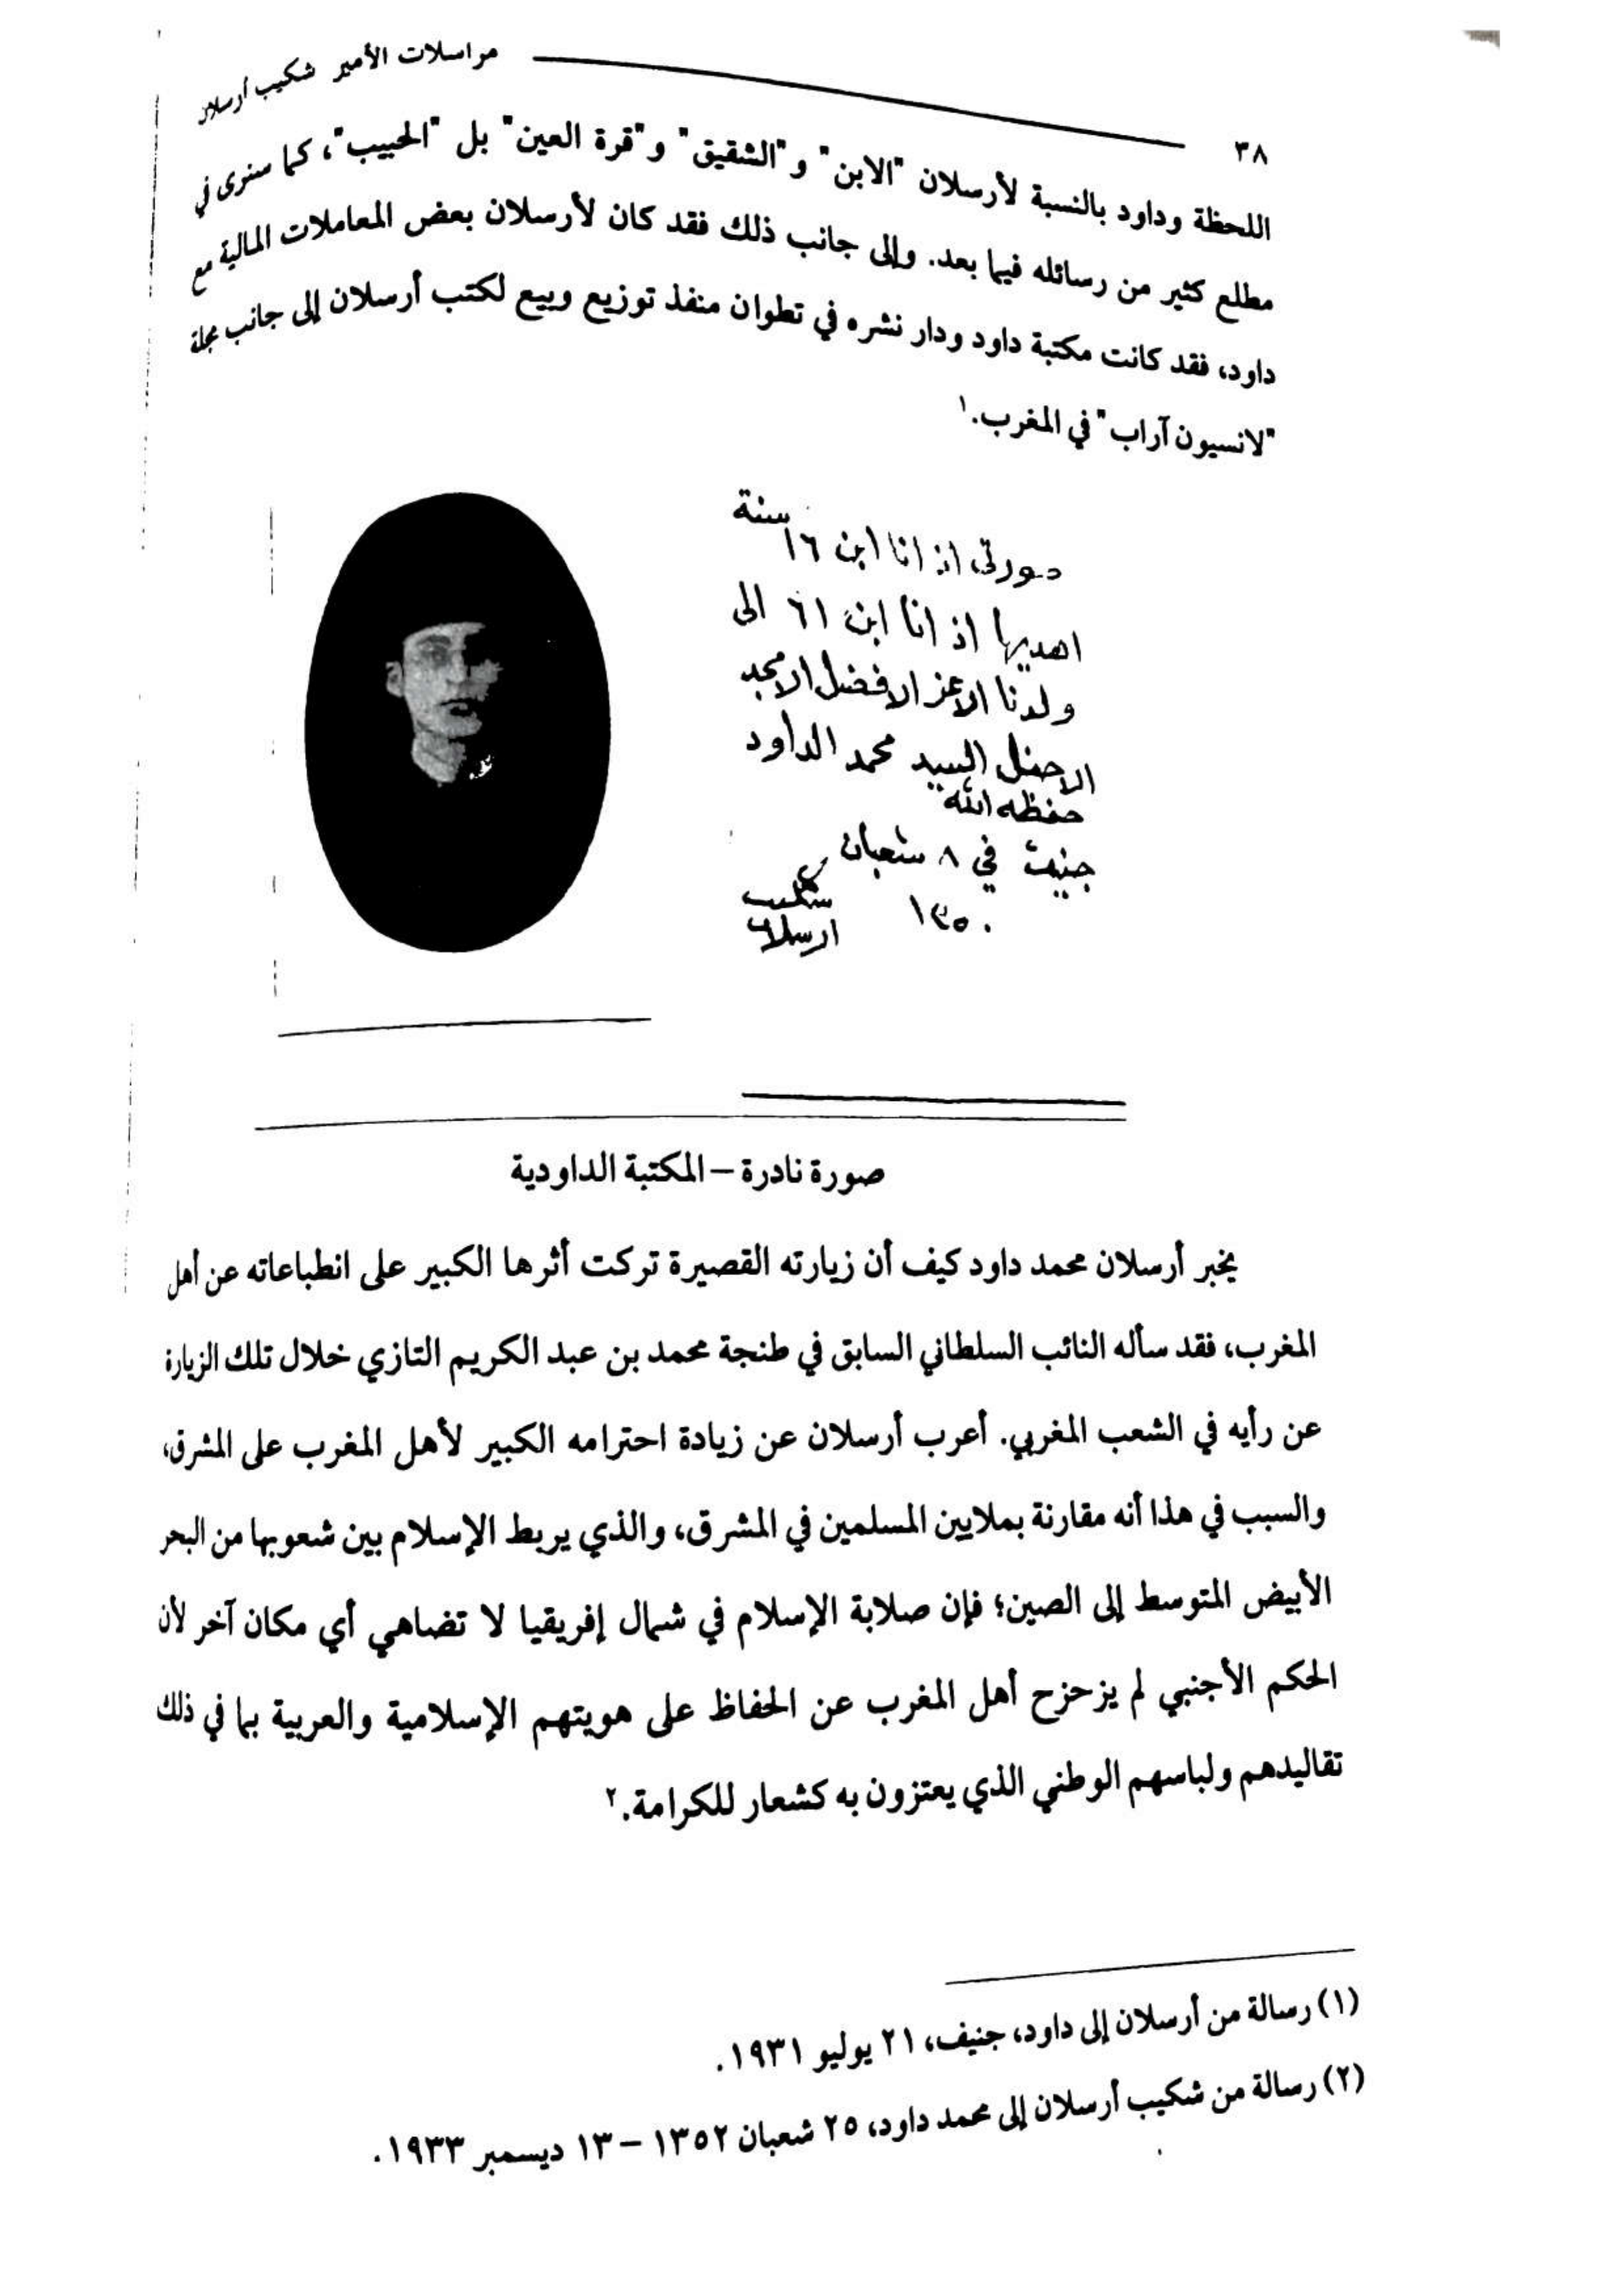 مراسلات الأمير شكيب أرسلان
٣٨
اللحظة وداود بالنسبة لأرسلان "الابن" و"الشقيق" و"قرة العين" بل "الحبيب"، كما سنرى في
مطلع كثير من رسائله فيما بعد. وإلى جانب ذلك فقد كان لأرسلان بعض المعاملات المالية مع
داود، فقد كانت مكتبة داود ودار نشره في تطوان منفذ توزيع وبيع لكتب أرسلان إلى جانب مجلة
"لانسيون آراب" في المغرب.١
صورتي اذ انا ابن ١٦ سنة
اهديها اذ انا ابن ٦١ الى
ولدنا الاعز الافضل الامجد
السيد محمد الداود
حفظه الله
جنيف في ٨ شعبان
١٣٥٠
شكيب
ارسلان
صورة نادرة – المكتبة الداودية
يخبر أرسلان محمد داود كيف أن زيارته القصيرة تركت أثرها الكبير على انطباعاته عن أهل
المغرب، فقد سأله النائب السلطاني السابق في طنجة محمد بن عبد الكريم التازي خلال تلك الزيارة
عن رأيه في الشعب المغربي. أعرب أرسلان عن زيادة احترامه الكبير لأهل المغرب على المشرق،
والسبب في هذا أنه مقارنة بملايين المسلمين في المشرق، والذي يربط الإسلام بين شعوبها من البحر
الأبيض المتوسط إلى الصين؛ فإن صلابة الإسلام في شمال إفريقيا لا تضاهي أي مكان آخر لأن
الحكم الأجنبي لم يزحزح أهل المغرب عن الحفاظ على هويتهم الإسلامية والعربية بما في ذلك
تقاليدهم ولباسهم الوطني الذي يعتزون به كشعار للكرامة.٢
(١) رسالة من أرسلان إلى داود، جنيف، ٢١ يوليو ١٩٣١.
(٢) رسالة من شكيب أرسلان إلى محمد داود، ٢٥ شعبان ١٣٥٢ – ١٣ ديسمبر ١٩٣٣.